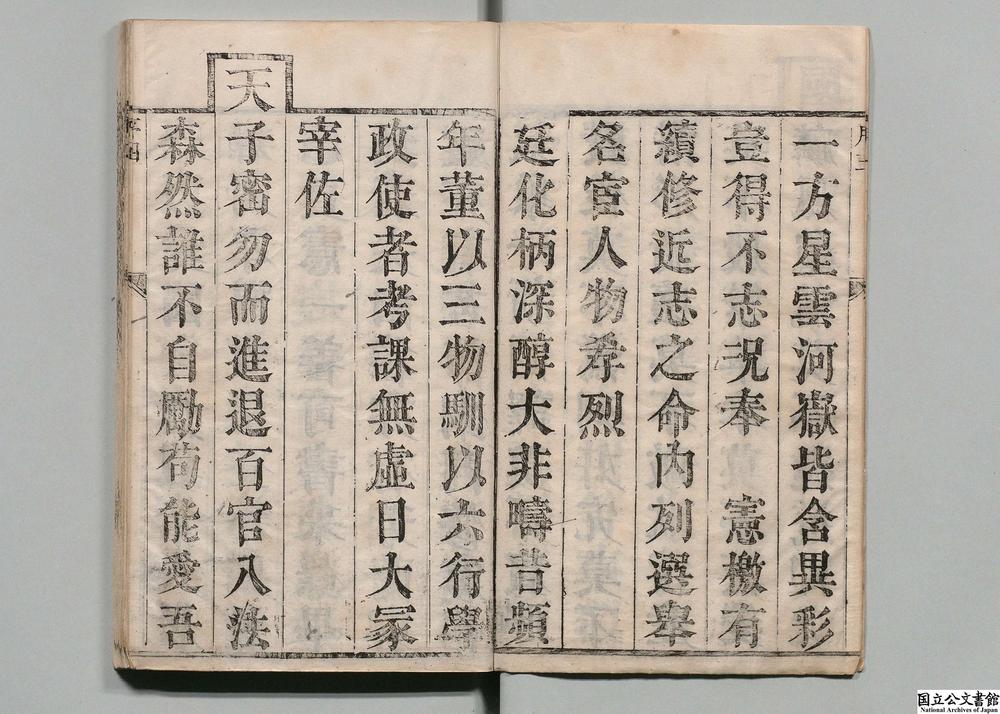 一方星雲河嶽皆含異彩
豈得不志况奉　憲檄有
續修近志之命內列選舉
名宦人物孝烈
廷化柄深醇大非疇昔頻
年董以三物馴以六行學
政使者考課無虛日大冢
宰佐
天子密勿而進退百官八法
森然誰不自勵苟能愛吾
国立公文書館
National Archives of Japan